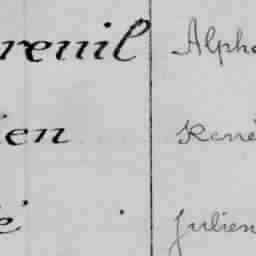 reuil Alpho
ien René
é Julien